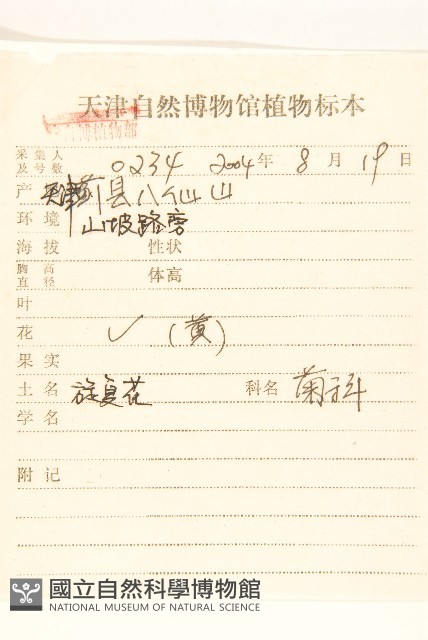 天津自然博物馆植物标本
采集人及号数 0234 2004年 8月 19日
产 天津蓟县八仙山
环境 山坡路旁
海拔 性状
胸高直径 体高
叶
花 ✓ (黄)
果实
土名 旋复花 科名 菊科
学名
附记
國立自然科學博物館
NATIONAL MUSEUM OF NATURAL SCIENCE